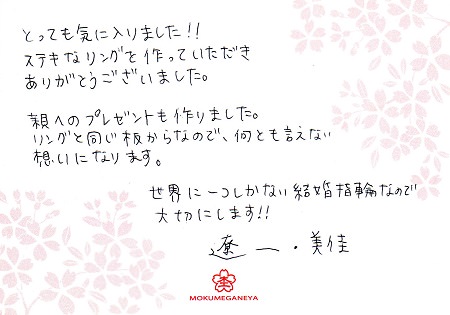 とっても気に入りました!!
ステキなリングを作っていただき
ありがとうございました。
親へのプレゼントも作りました。
リングと同じ板からなので、何とも言えない
想いになります。
世界に一つしかない結婚指輪なので
大切にします!!
遼一・美佳
MOKUMEGANEYA